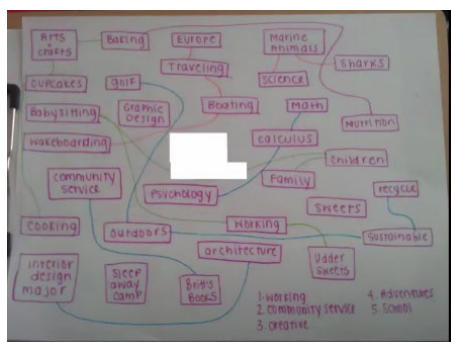 Arts
+ crafts
Baking
Europe
Marine
Animals
Sharks
Traveling
Science
cupcakes
golf
Graphic
Design
Boating
Math
Babysitting
Nutrition
Wakeboarding
calculus
children
Family
community
service
Psychology
recycle
sweets
cooking
outdoors
working
sustainable
architecture
Udder
sweets
interior
design
major
sleep
away
camp
Britt's
Books
1. working
2. community service
3. creative
4. Adventures
5. School